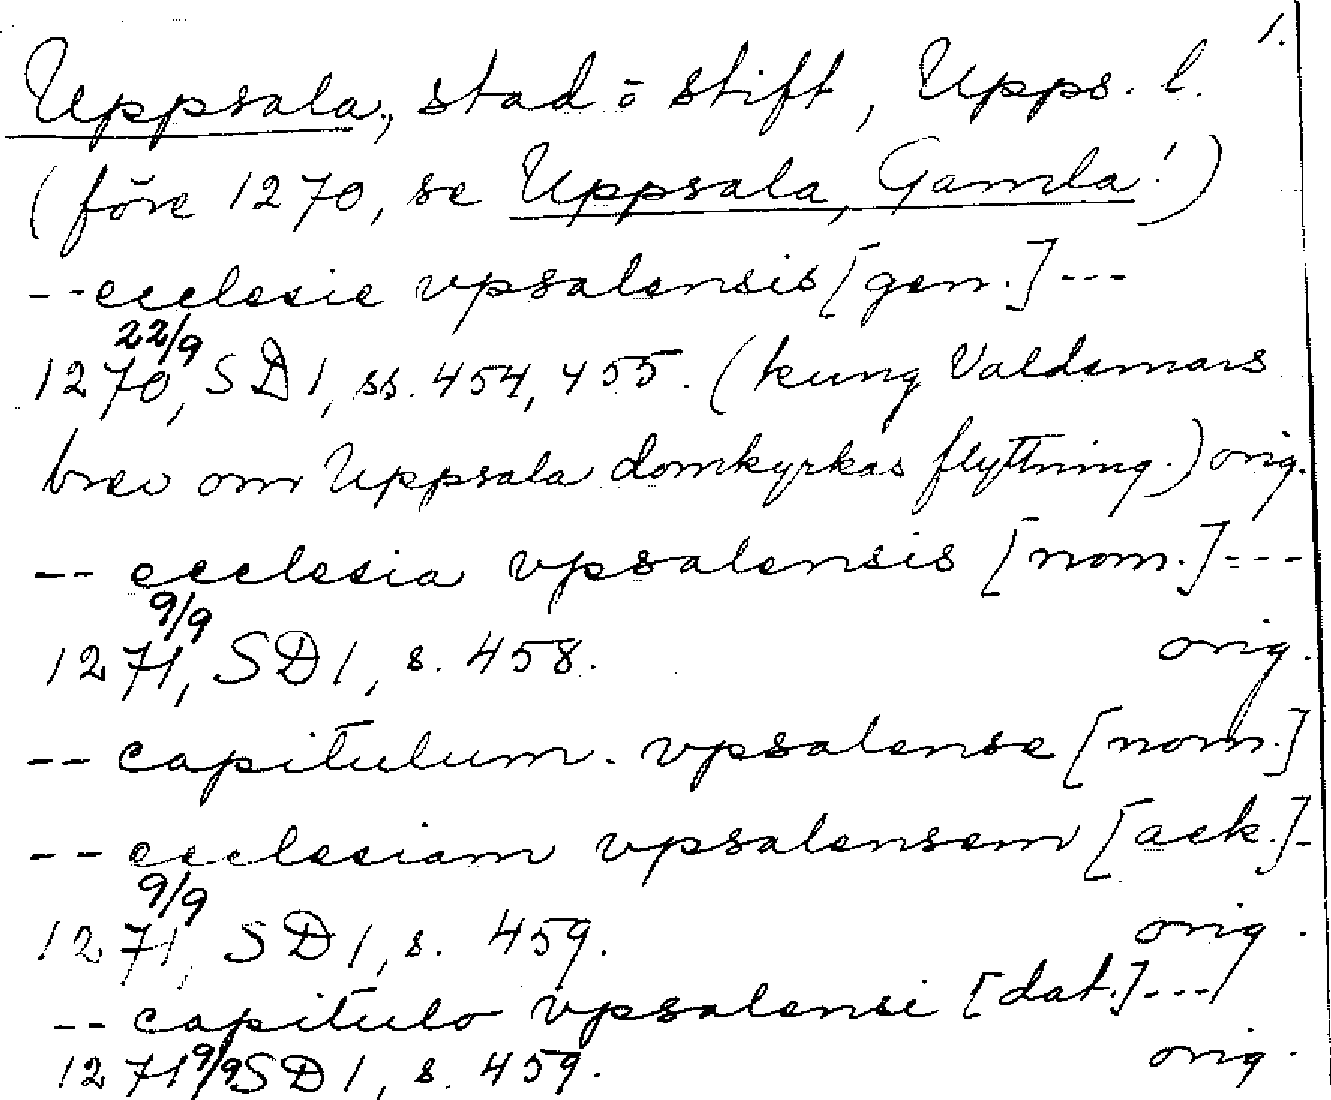 1.
Uppsala, stad o stift, Upps. l.
(före 1270, se Uppsala, Gamla!)
--ecclesie vpsalensis [gen.]---
22/9
1270, SD 1, ss. 454, 455. (kung Valdemars
brev om Uppsala domkyrkas flyttning.) orig.
-- ecclesia vpsalensis [nom.]---
9/9
1271, SD 1, s. 458. orig.
-- capitulum. vpsalense [nom.]
-- ecclesiam vpsalensem [ack.]-
9/9
1271, SD 1, s. 459. orig.
-- capitulo vpsalensi [dat.]---
1271 9/9 SD 1, s. 459. orig.